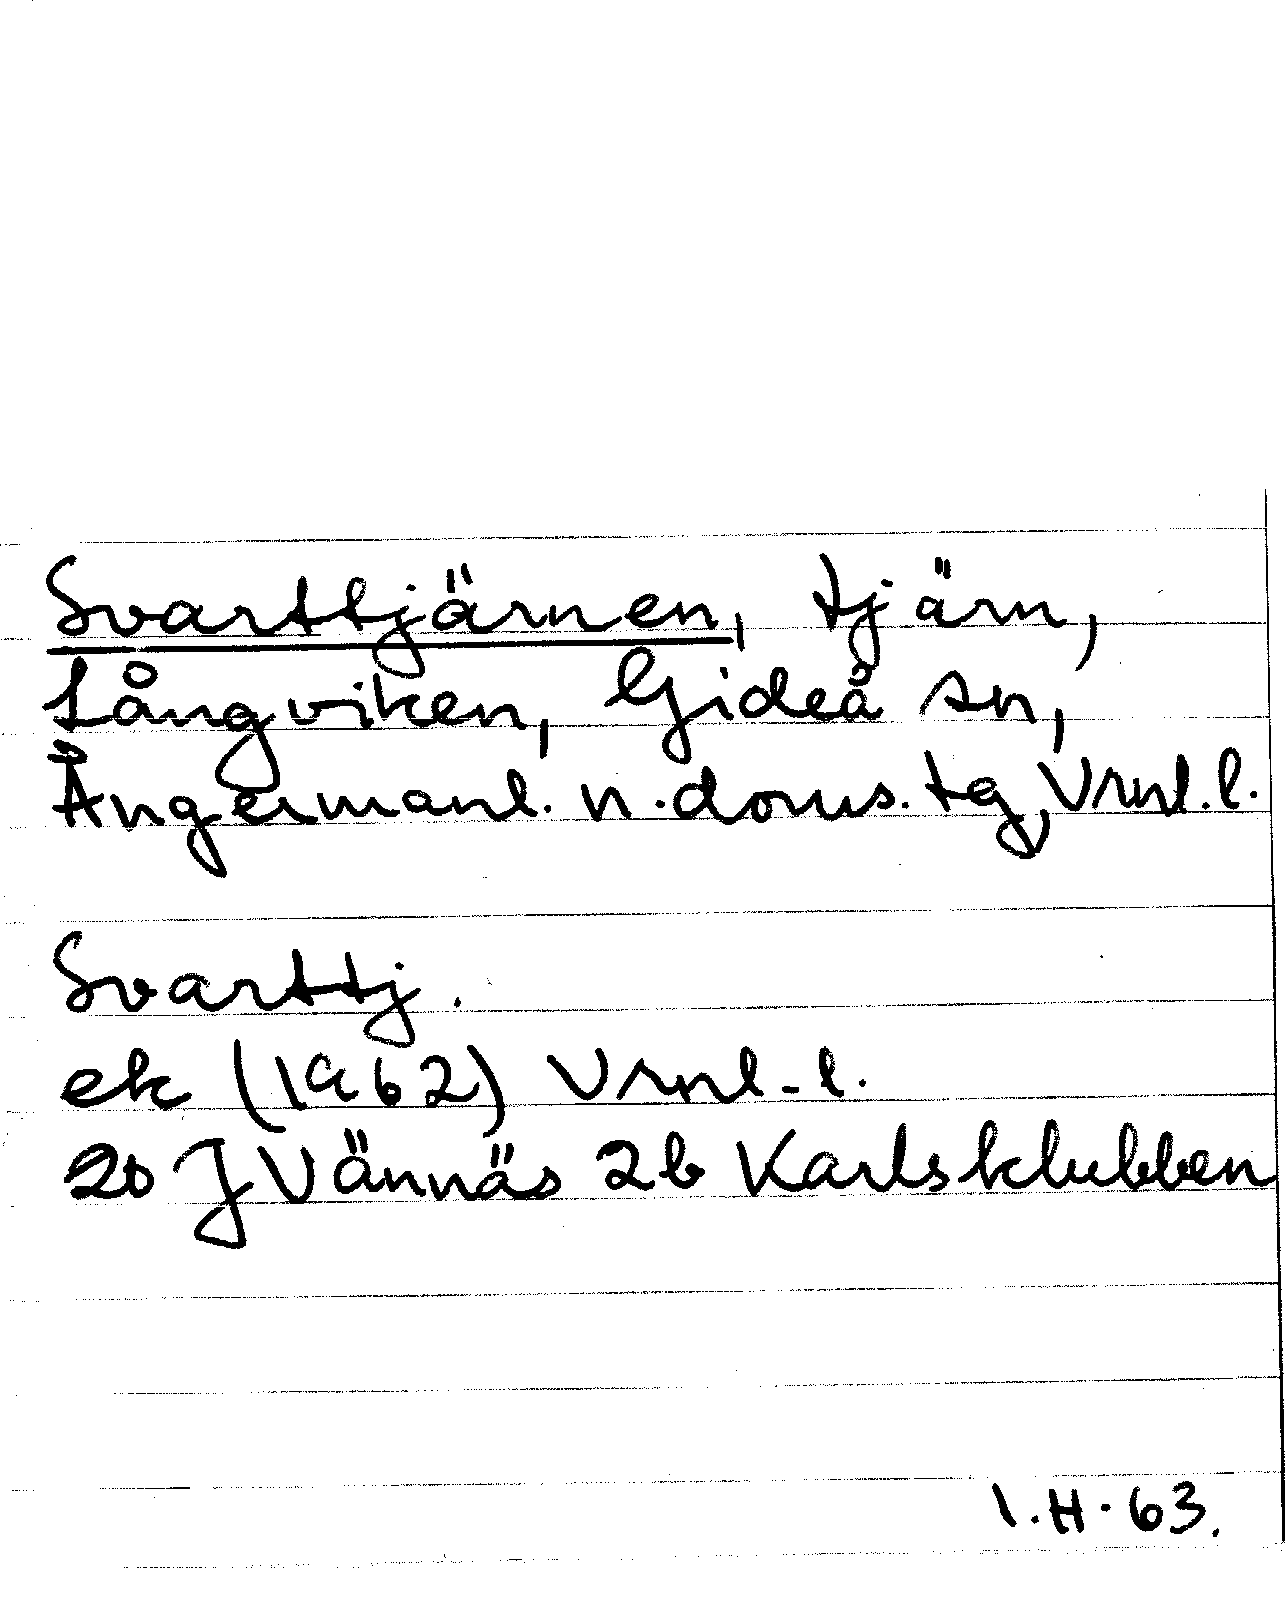 Svarttjärnen, tjärn,
Långviken, Gideå sn,
Ångermanl. n. doms. tg, Vrnl. l.
Svarttj.
ek (1962) Vrnl-l.
20 J Vännäs 2b Karlsklubben
I.H. 63.